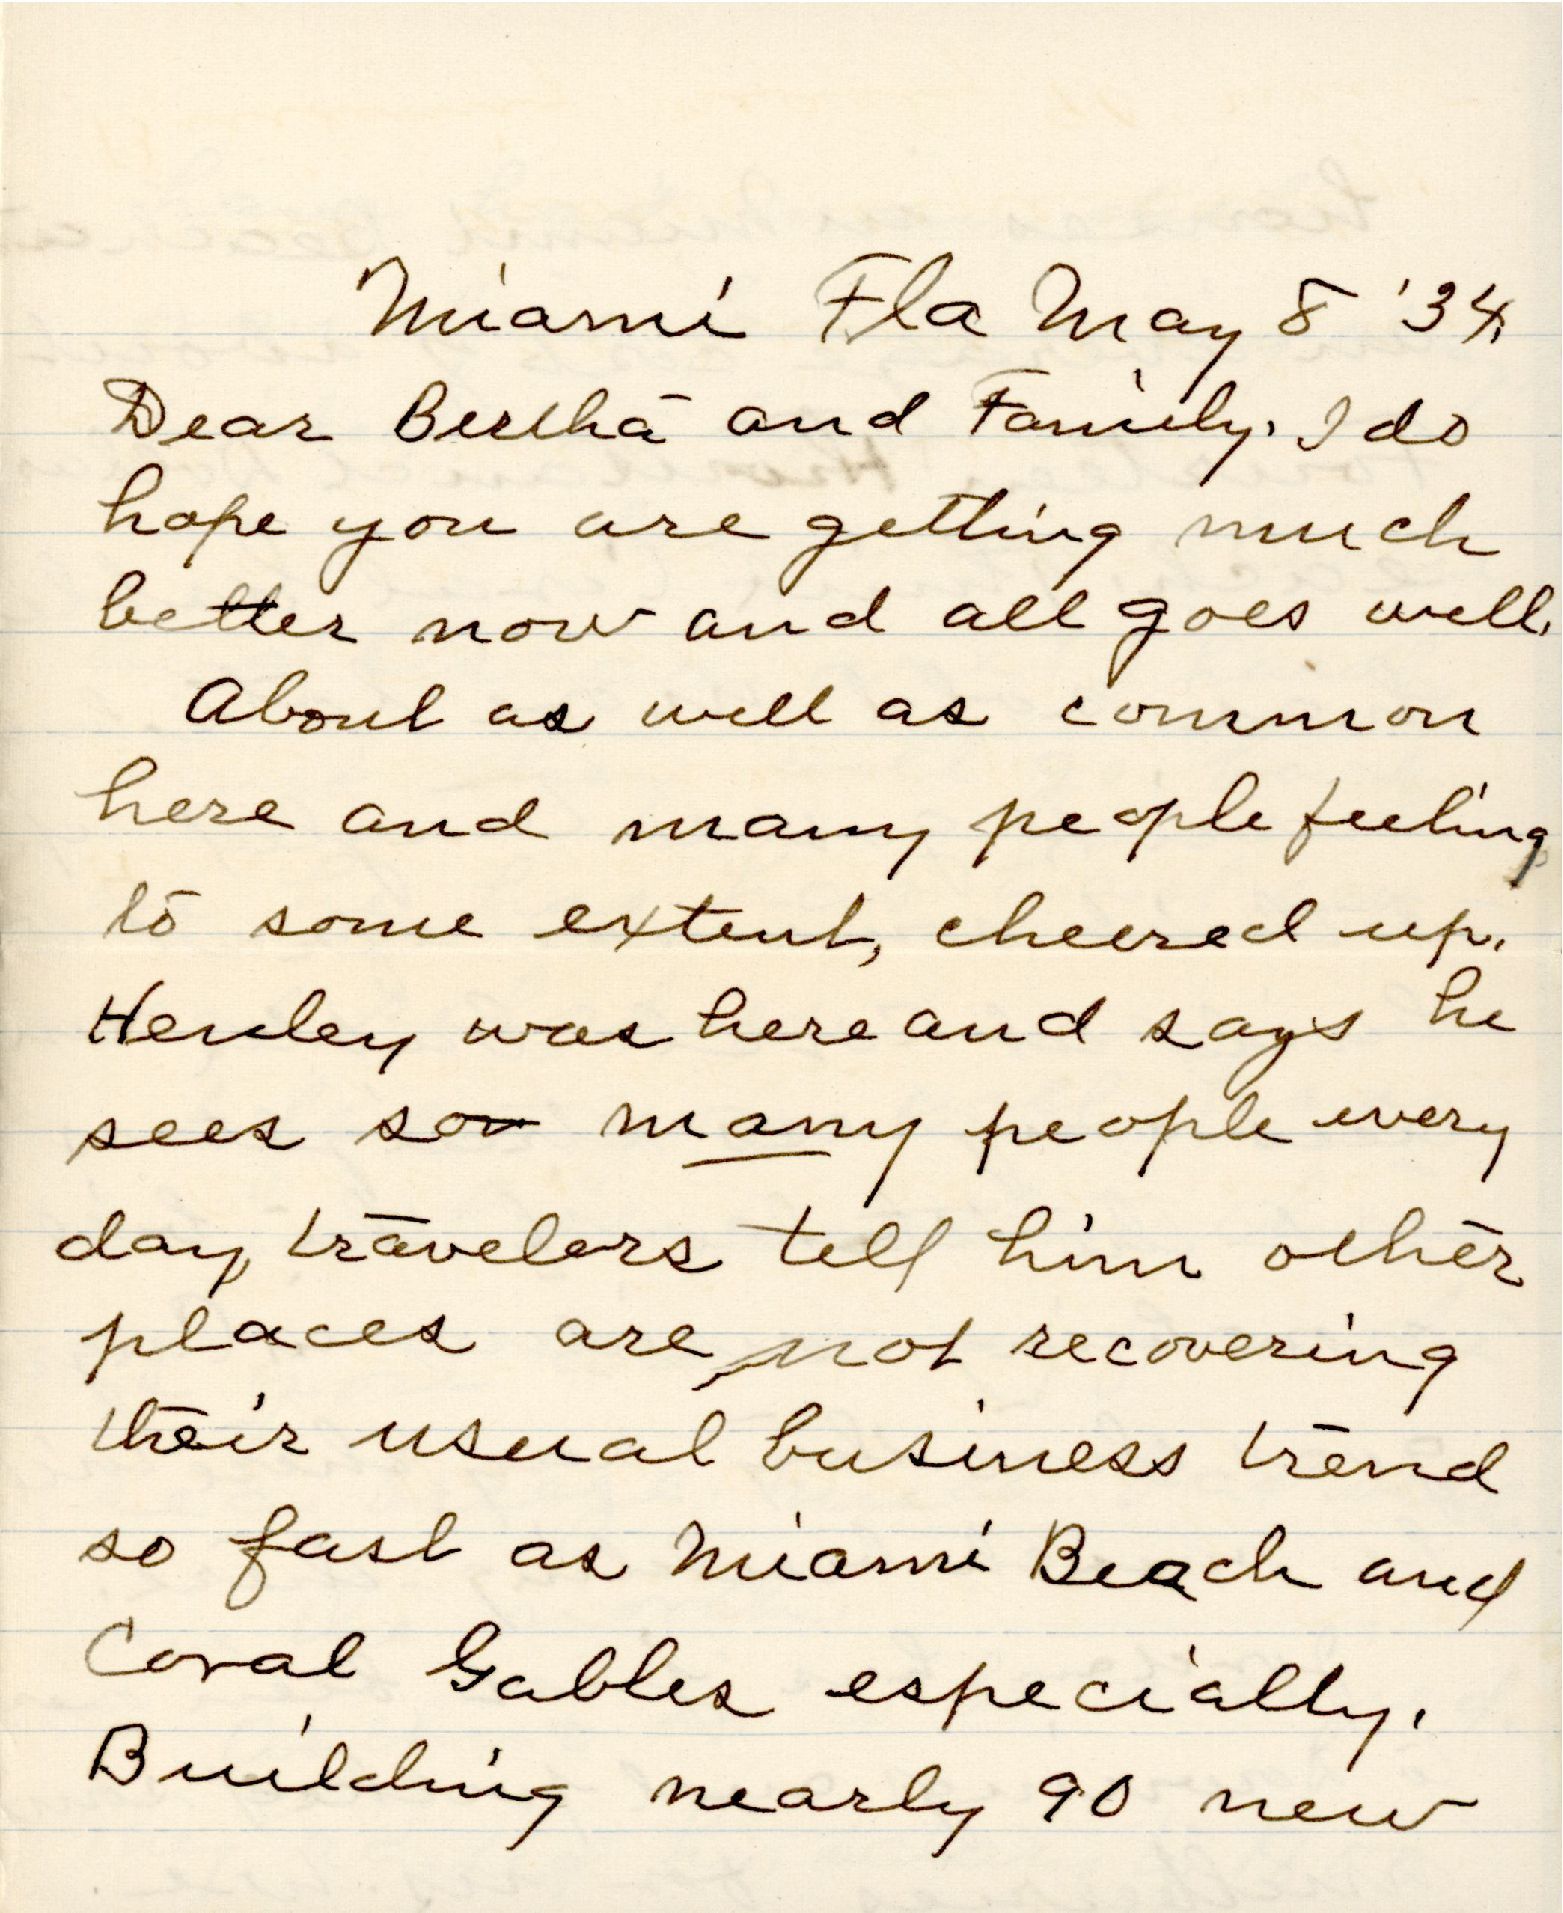 Miami Fla May 8 '34.
Dear Bertha and Family. I do
hope you are getting much
better now and all goes well.
About as well as common
here and many people feeling
to some extent, cheered up.
Henley was here and says he
sees so many people every
day, travelers tell him other
places are not recovering
their usual business trend
so fast as Miami Beach and
Coral Gables especially.
Building nearly 90 new